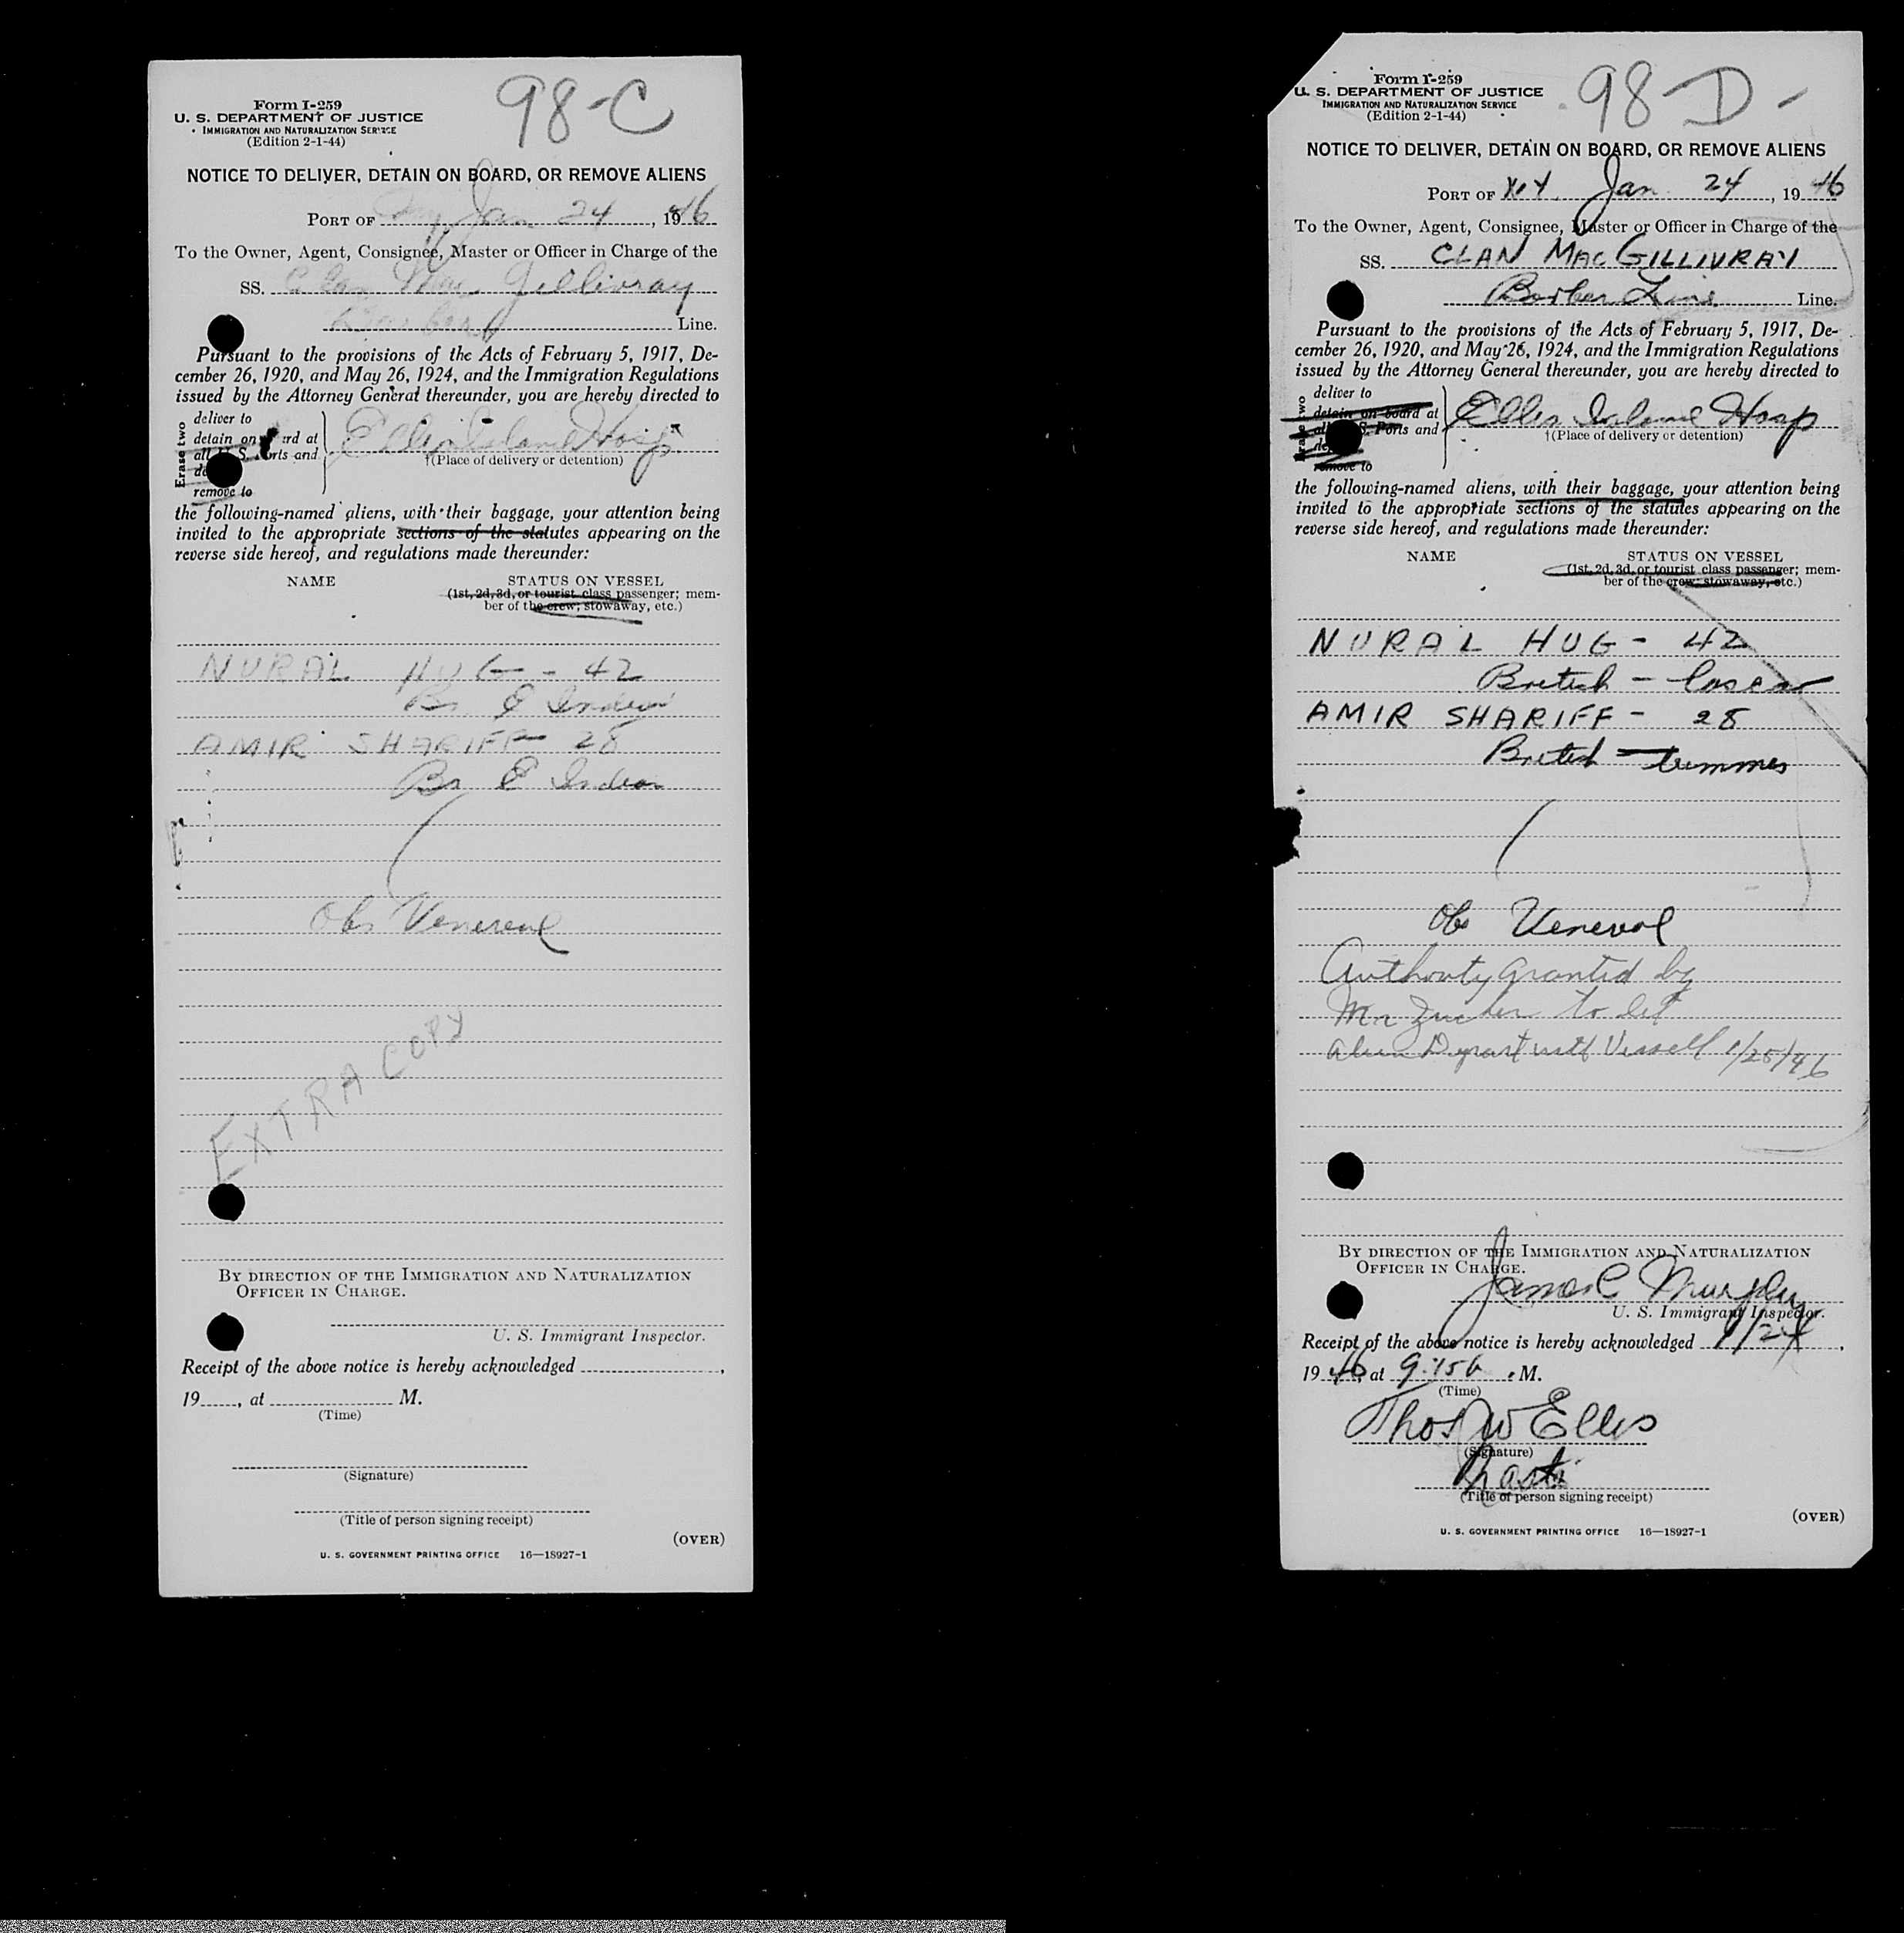 98-C
Form I-259
U. S. DEPARTMENT OF JUSTICE
IMMIGRATION AND NATURALIZATION SERVICE
(Edition 2-1-44)
NOTICE TO DELIVER, DETAIN ON BOARD, OR REMOVE ALIENS
PORT OF Jan 24, 1946
To the Owner, Agent, Consignee, Master or Officer in Charge of the
SS. Clan Mac Gillivray
Barber Line.
Pursuant to the provisions of the Acts of February 5, 1917, De-
cember 26, 1920, and May 26, 1924, and the Immigration Regulations
issued by the Attorney General thereunder, you are hereby directed to
Erase two
deliver to
detain on board at
all U. S. Ports and
remove to
Ellis Island Hosp
†(Place of delivery or detention)
the following-named aliens, with their baggage, your attention being
invited to the appropriate sections of the statutes appearing on the
reverse side hereof, and regulations made thereunder:
NAME STATUS ON VESSEL
(1st, 2d, 3d, or tourist class passenger; mem-
ber of the crew; stowaway, etc.)
NURAL HUG - 42
Br E Indian
AMIR SHARIFF 28
Br E Indian
Obs Venereal
EXTRA COPY
BY DIRECTION OF THE IMMIGRATION AND NATURALIZATION
OFFICER IN CHARGE.
U. S. Immigrant Inspector.
Receipt of the above notice is hereby acknowledged ,
19 , at M.
(Time)
(Signature)
(Title of person signing receipt)
(OVER)
U. S. GOVERNMENT PRINTING OFFICE 16—18927-1
98-D-
Form I-259
U. S. DEPARTMENT OF JUSTICE
IMMIGRATION AND NATURALIZATION SERVICE
(Edition 2-1-44)
NOTICE TO DELIVER, DETAIN ON BOARD, OR REMOVE ALIENS
PORT OF N.Y. Jan 24, 1946
To the Owner, Agent, Consignee, Master or Officer in Charge of the
SS. CLAN MAC GILLIVRAY
Barber Line Line.
Pursuant to the provisions of the Acts of February 5, 1917, De-
cember 26, 1920, and May 26, 1924, and the Immigration Regulations
issued by the Attorney General thereunder, you are hereby directed to
Erase two
deliver to
detain on board at
all U. S. Ports and
remove to
Ellis Island Hosp
†(Place of delivery or detention)
the following-named aliens, with their baggage, your attention being
invited to the appropriate sections of the statutes appearing on the
reverse side hereof, and regulations made thereunder:
NAME STATUS ON VESSEL
(1st, 2d, 3d, or tourist class passenger; mem-
ber of the crew; stowaway, etc.)
NURAL HUG - 42
British - lascar
AMIR SHARIFF - 28
British - trimmer
Obs Veneral
Authority granted by
Mr Zucker to let
alien Depart with Vessell 1/25/46
BY DIRECTION OF THE IMMIGRATION AND NATURALIZATION
OFFICER IN CHARGE.
James C Murphy
U. S. Immigrant Inspector.
Receipt of the above notice is hereby acknowledged 1/24,
1946, at 9:15 a.M.
(Time)
Thos W Ellis
(Signature)
(Title of person signing receipt)
(OVER)
U. S. GOVERNMENT PRINTING OFFICE 16—18927-1